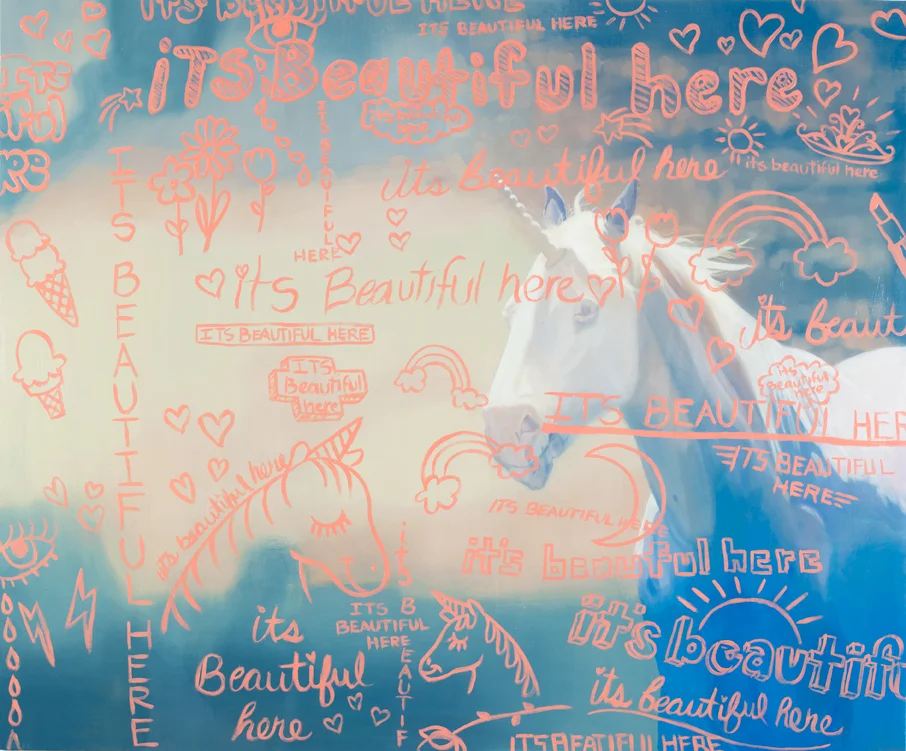 iTS BEAUTIFUL HERE
ITS BEAUTIFUL HERE
iTS Beautiful here
ITS
ful
RE
its beautiful
its Beautiful here
its beautiful here
ITS BEAUTIFUL HERE
ITS BEAUTIFUL HERE
its Beautiful here
its beaut
ITS BEAUTIFUL HERE
ITS
Beautiful
here
its
Beautiful
here
ITS BEAUTIFUL HER
ITS BEAUTIFUL
HERE
its beautiful here
ITS BEAUTIFUL HERE
it's beautiful here
its
BEAUTIF
its
Beautiful
here
ITS B
BEAUTIFUL
HERE
it's beautif
its beautiful here
ITS BEATIFUL HERE